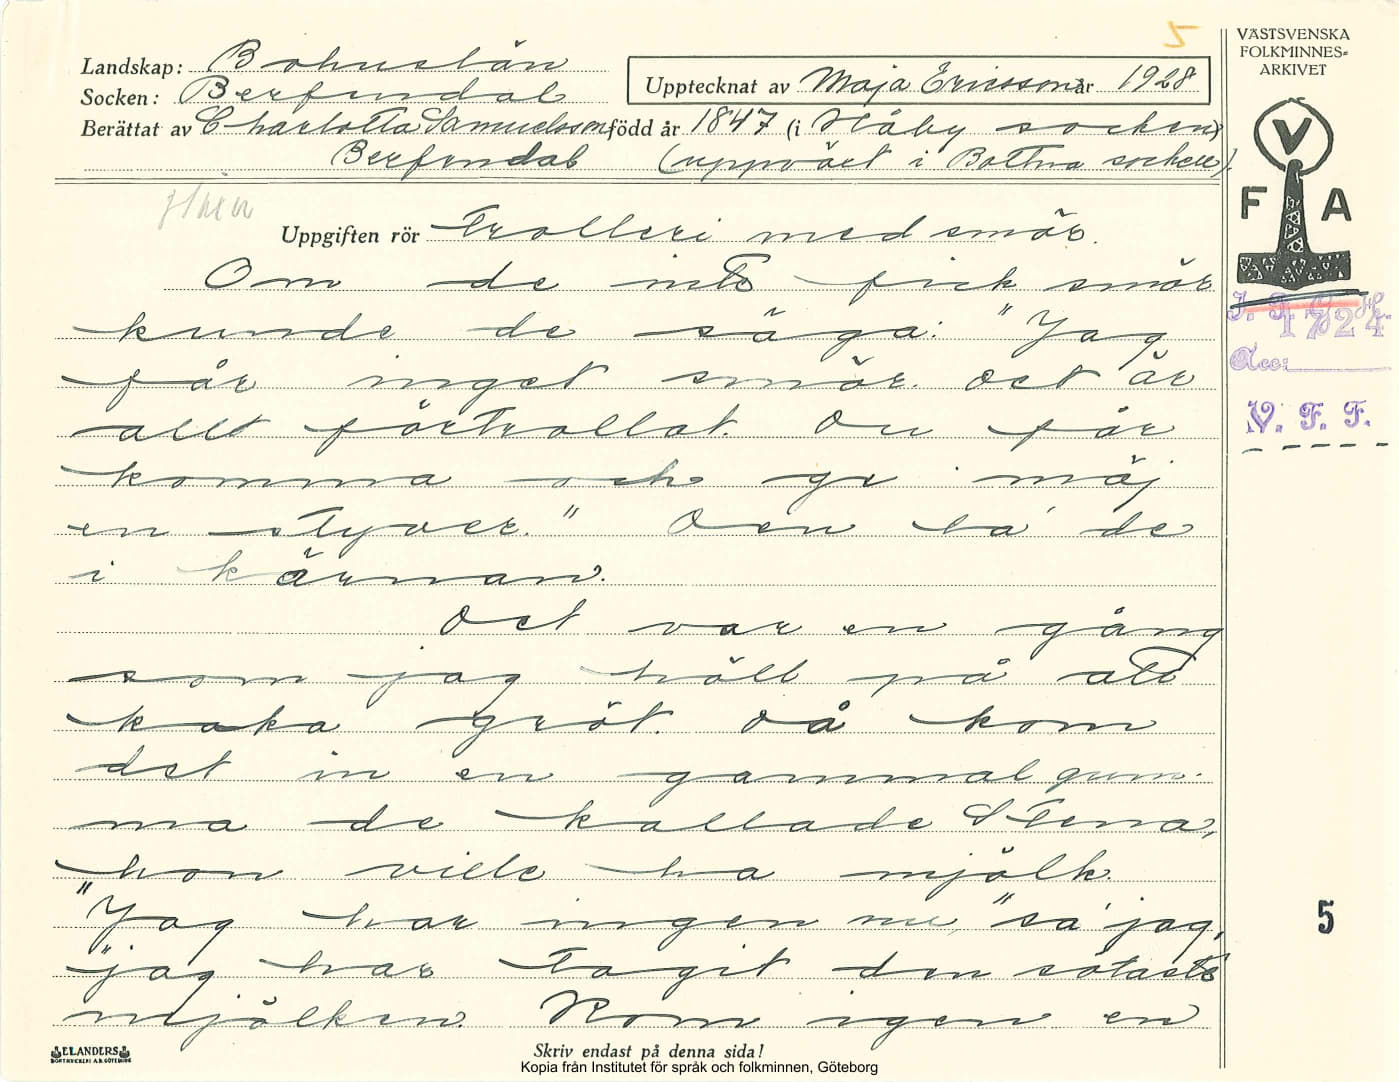 5
VÄSTSVENSKA
FOLKMINNES=
ARKIVET
Landskap: Bohuslän
Socken: Berfendal
Upptecknat av Maja Ericsson år 1928
Berättat av Charlotta Samuelsson född år 1847 (i Håby socken)
Berfendal (uppväxt i Bottna socken).
V
F A
Uppgiften rör Trolleri med smör.
Om de inte fick smör
kunde de säga: "Jag
får inget smör. Det är
allt förtrollat. Du får
komma och ge mäj
en styver." Den la' de
i kärnan.
Det var en gång
som jag höll på att
koka gröt. Då kom
det in en gammal gum-
ma de kallade Stena,
hon ville ha mjölk.
"Jag har ingen nu," sa' jag,
"jag har tagit den sötaste
mjölken. Kom igen en
1724
Acc:
V. F. F.
5
ELANDERS
BOKTRYCKERI A.B. GÖTEBORG
Skriv endast på denna sida!
Kopia från Institutet för språk och folkminnen, Göteborg